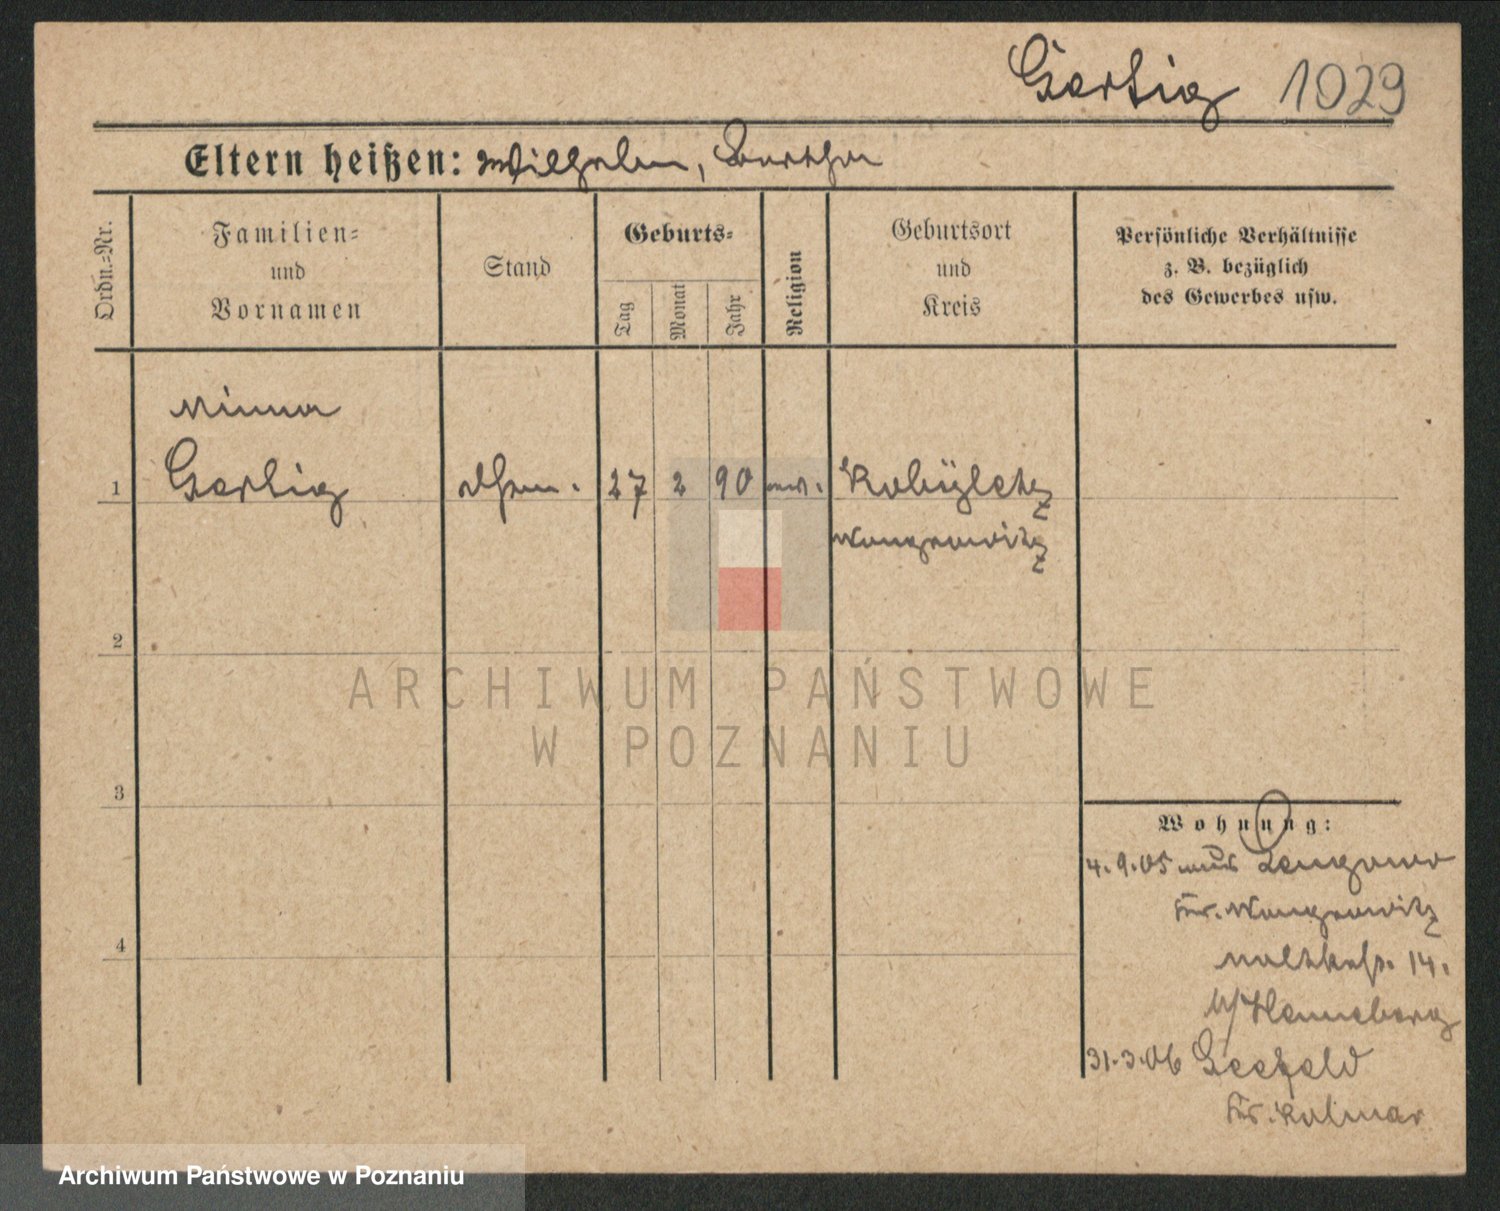 Gertig 1029
Eltern heißen: Wilhelm, Bertha
Ordn.=Nr.
Familien=
und
Vornamen
Stand
Geburts=
Tag
Monat
Jahr
Religion
Geburtsort
und
Kreis
Persönliche Verhältnisse
z. B. bezüglich
des Gewerbes usw.
Minna
1 Gertig 27 2 90
Wongrowitz
2
ARCHIWUM PAŃSTWOWE
W POZNANIU
3
Wohnung:
4.9.05 aus
Kr. Wongrowitz
4
Moltkestr. 14.
b/ Henneberg
31.3.06 Seefeld
Kr. Kolmar
Archiwum Państwowe w Poznaniu